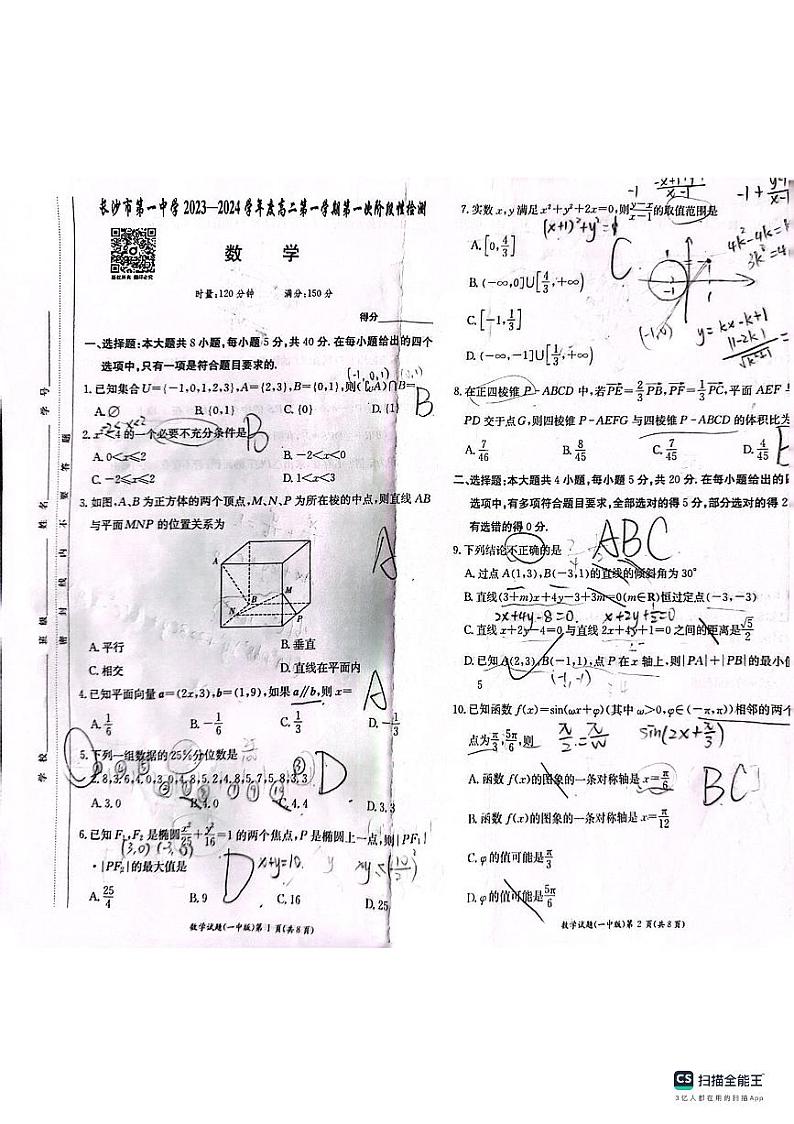 长沙市第一中学2023—2024学年度高二第一学期第一次阶段性检测
数 学
时量:120分钟 满分:150分
得分
一、选择题:本大题共8小题,每小题5分,共40分.在每小题给出的四个
选项中,只有一项是符合题目要求的.
(-1,0,1)
1.已知集合U={-1,0,1,2,3},A={2,3},B={0,1},则(∁UA)∩B=
A.∅ B.{0,1} C.{0} D.{1}
B
-2<x<2
2.x²<4的一个必要不充分条件是
B
A.0<x≤2 B.-2<x<0
C.-2≤x≤2 D.1<x<3
3.如图,A、B为正方体的两个顶点,M、N、P为所在棱的中点,则直线AB
与平面MNP的位置关系为
A
A
M
B
N
P
A.平行 B.垂直
C.相交 D.直线在平面内
4.已知平面向量a=(2x,3),b=(1,9),如果a∥b,则x=
A
A.1/6 B.-1/6 C.1/3 D.-1/3
5.下列一组数据的25%分位数是
2.8,3.6,4.0,3.0,4.8,5.2,4.8,5.7,5.8,3.3
D
A.3.0 B.4.0 C.4.4 D.3.3
6.已知F₁,F₂是椭圆x²/25+y²/16=1的两个焦点,P是椭圆上一点,则|PF₁|
(3,0) (-3,0)
·|PF₂|的最大值是
D x+y=10. xy≤(10/2)²
A.25/4 B.9 C.16 D.25
数学试题(一中版)第1页(共8页)
学校
班级
姓名
学号
密封线内不要答题
7.实数x,y满足x²+y²+2x=0,则y-x/x-1的取值范围是
(x+1)²+y²=1
A.[0,4/3]
C
B.(-∞,0]∪[4/3,+∞)
C.[-1,1/3]
D.(-∞,-1]∪[1/3,+∞)
4k²-4k=
3k²=4
(-1,0)
y=kx-k+1
|1-2k|
√k²+1
8.在正四棱锥P-ABCD中,若PE=2/3PB,PF=1/3PC,平面AEF
PD交于点G,则四棱锥P-AEFG与四棱锥P-ABCD的体积比为
A.7/46 B.8/45 C.7/45 D.4/45
二、选择题:本大题共4小题,每小题5分,共20分.在每小题给出的
选项中,有多项符合题目要求,全部选对的得5分,部分选对的得2
有选错的得0分.
9.下列结论不正确的是
ABC
A.过点A(1,3),B(-3,1)的直线的倾斜角为30°
B.直线(3+m)x+4y-3+3m=0(m∈R)恒过定点(-3,-3)
2x+4y-8=0. x+2y+½=0
C.直线x+2y-4=0与直线2x+4y+1=0之间的距离是√5/2
D.已知A(2,3),B(-1,1),点P在x轴上,则|PA|+|PB|的最小
5
(-1,-1)
10.已知函数f(x)=sin(ωx+φ)(其中ω>0,φ∈(-π,π))相邻的两个
点为π/3,5π/6,则
π/2=π/w sin(2x+π/3)
A.函数f(x)的图象的一条对称轴是x=π/6
BC
B.函数f(x)的图象的一条对称轴是x=π/12
C.φ的值可能是π/3
D.φ的值可能是5π/6
数学试题(一中版)第2页(共8页)
CS 扫描全能王
3亿人都在用的扫描App